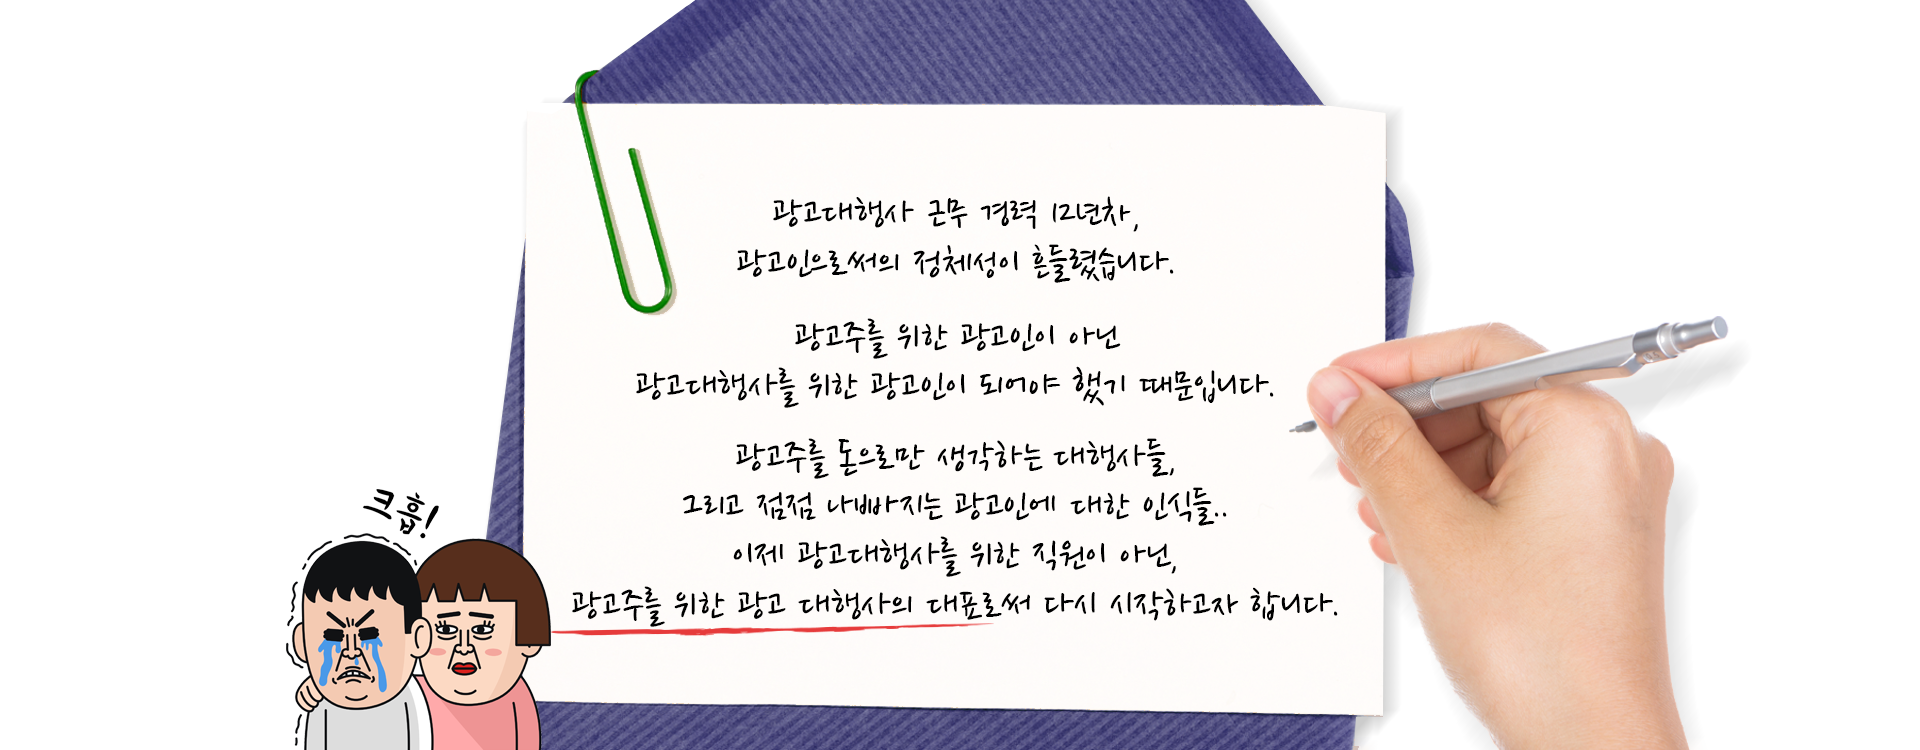 광고대행사 근무 경력 12년차,
광고인으로써의 정체성이 흔들렸습니다.
광고주를 위한 광고인이 아닌
광고대행사를 위한 광고인이 되어야 했기 때문입니다.
광고주를 돈으로만 생각하는 대행사들,
그리고 점점 나빠지는 광고인에 대한 인식들..
이제 광고대행사를 위한 직원이 아닌,
광고주를 위한 광고 대행사의 대표로써 다시 시작하고자 합니다.
크흡!